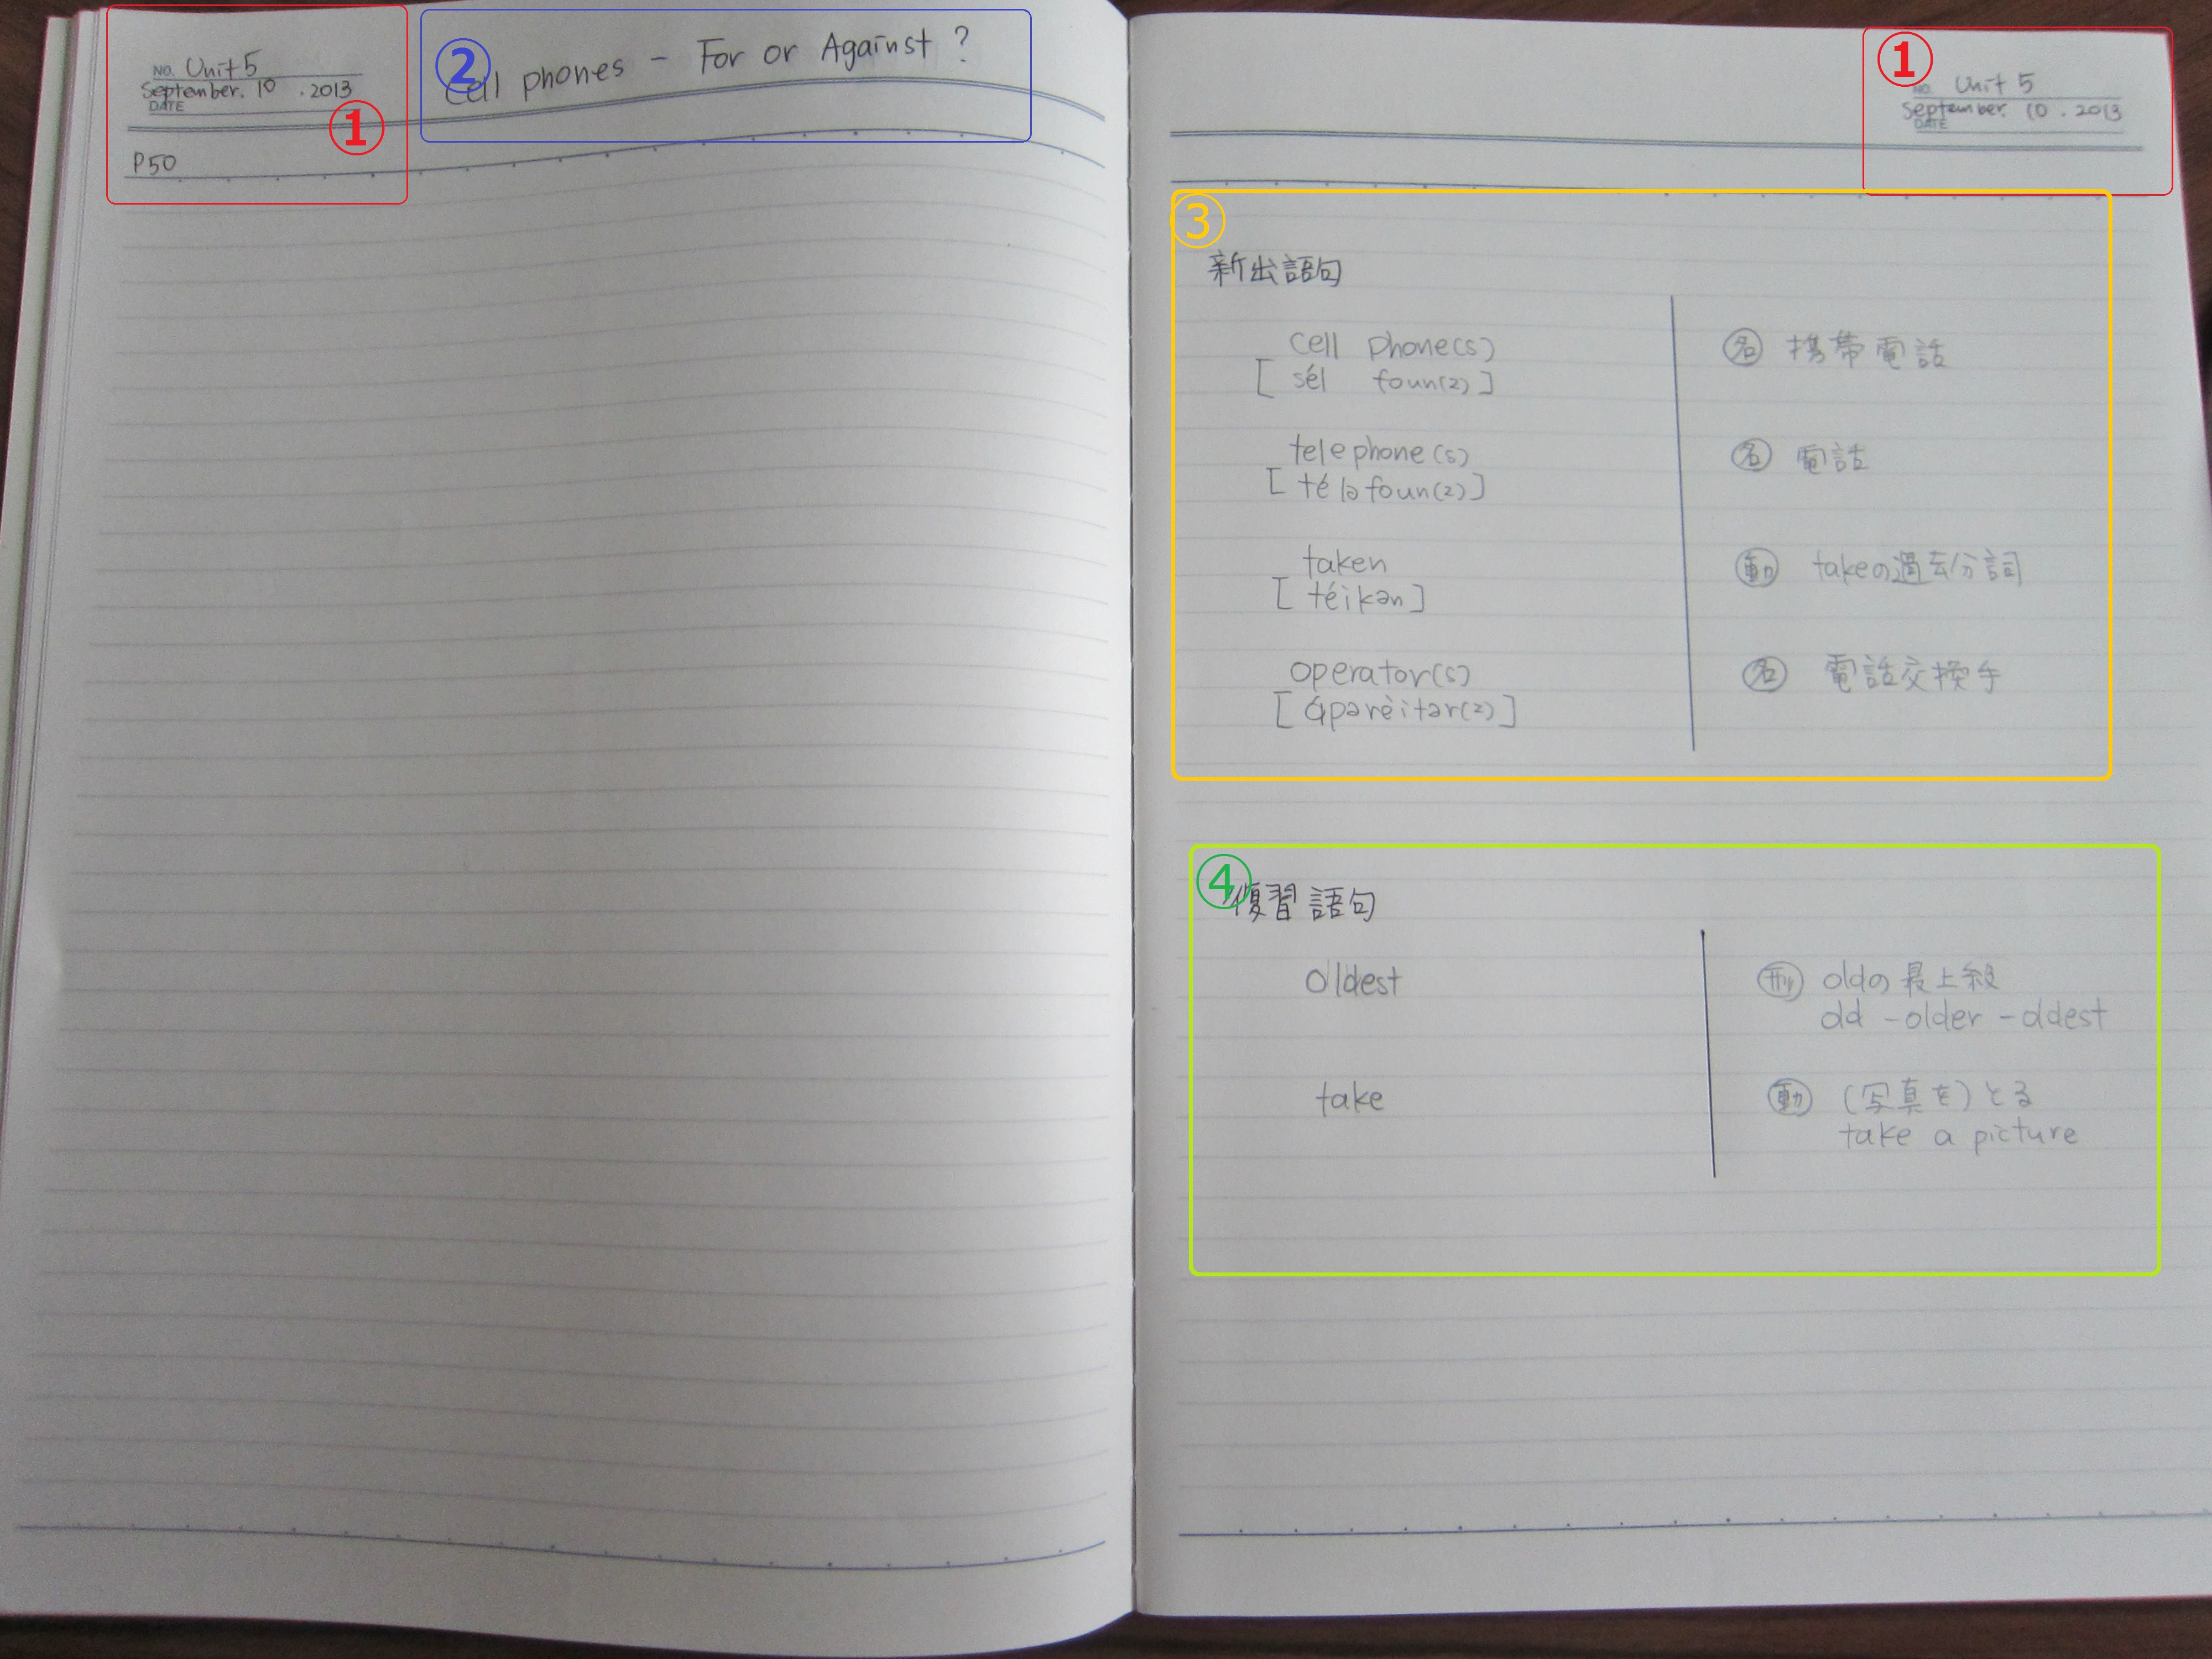 NO. Unit 5
September. 10 . 2013
DATE
①
P50
②
Cell phones - For or Against ?
①
NO. Unit 5
September. 10 . 2013
DATE
③
新出語句
cell phone(s) 名 携帯電話
[ sél foun(z) ]
telephone(s) 名 電話
[ téləfoun(z) ]
taken 動 takeの過去分詞
[ téikən ]
operator(s) 名 電話交換手
[ ápərèitər(z) ]
④
復習語句
oldest 形 oldの最上級
old - older - oldest
take 動 (写真を)とる
take a picture